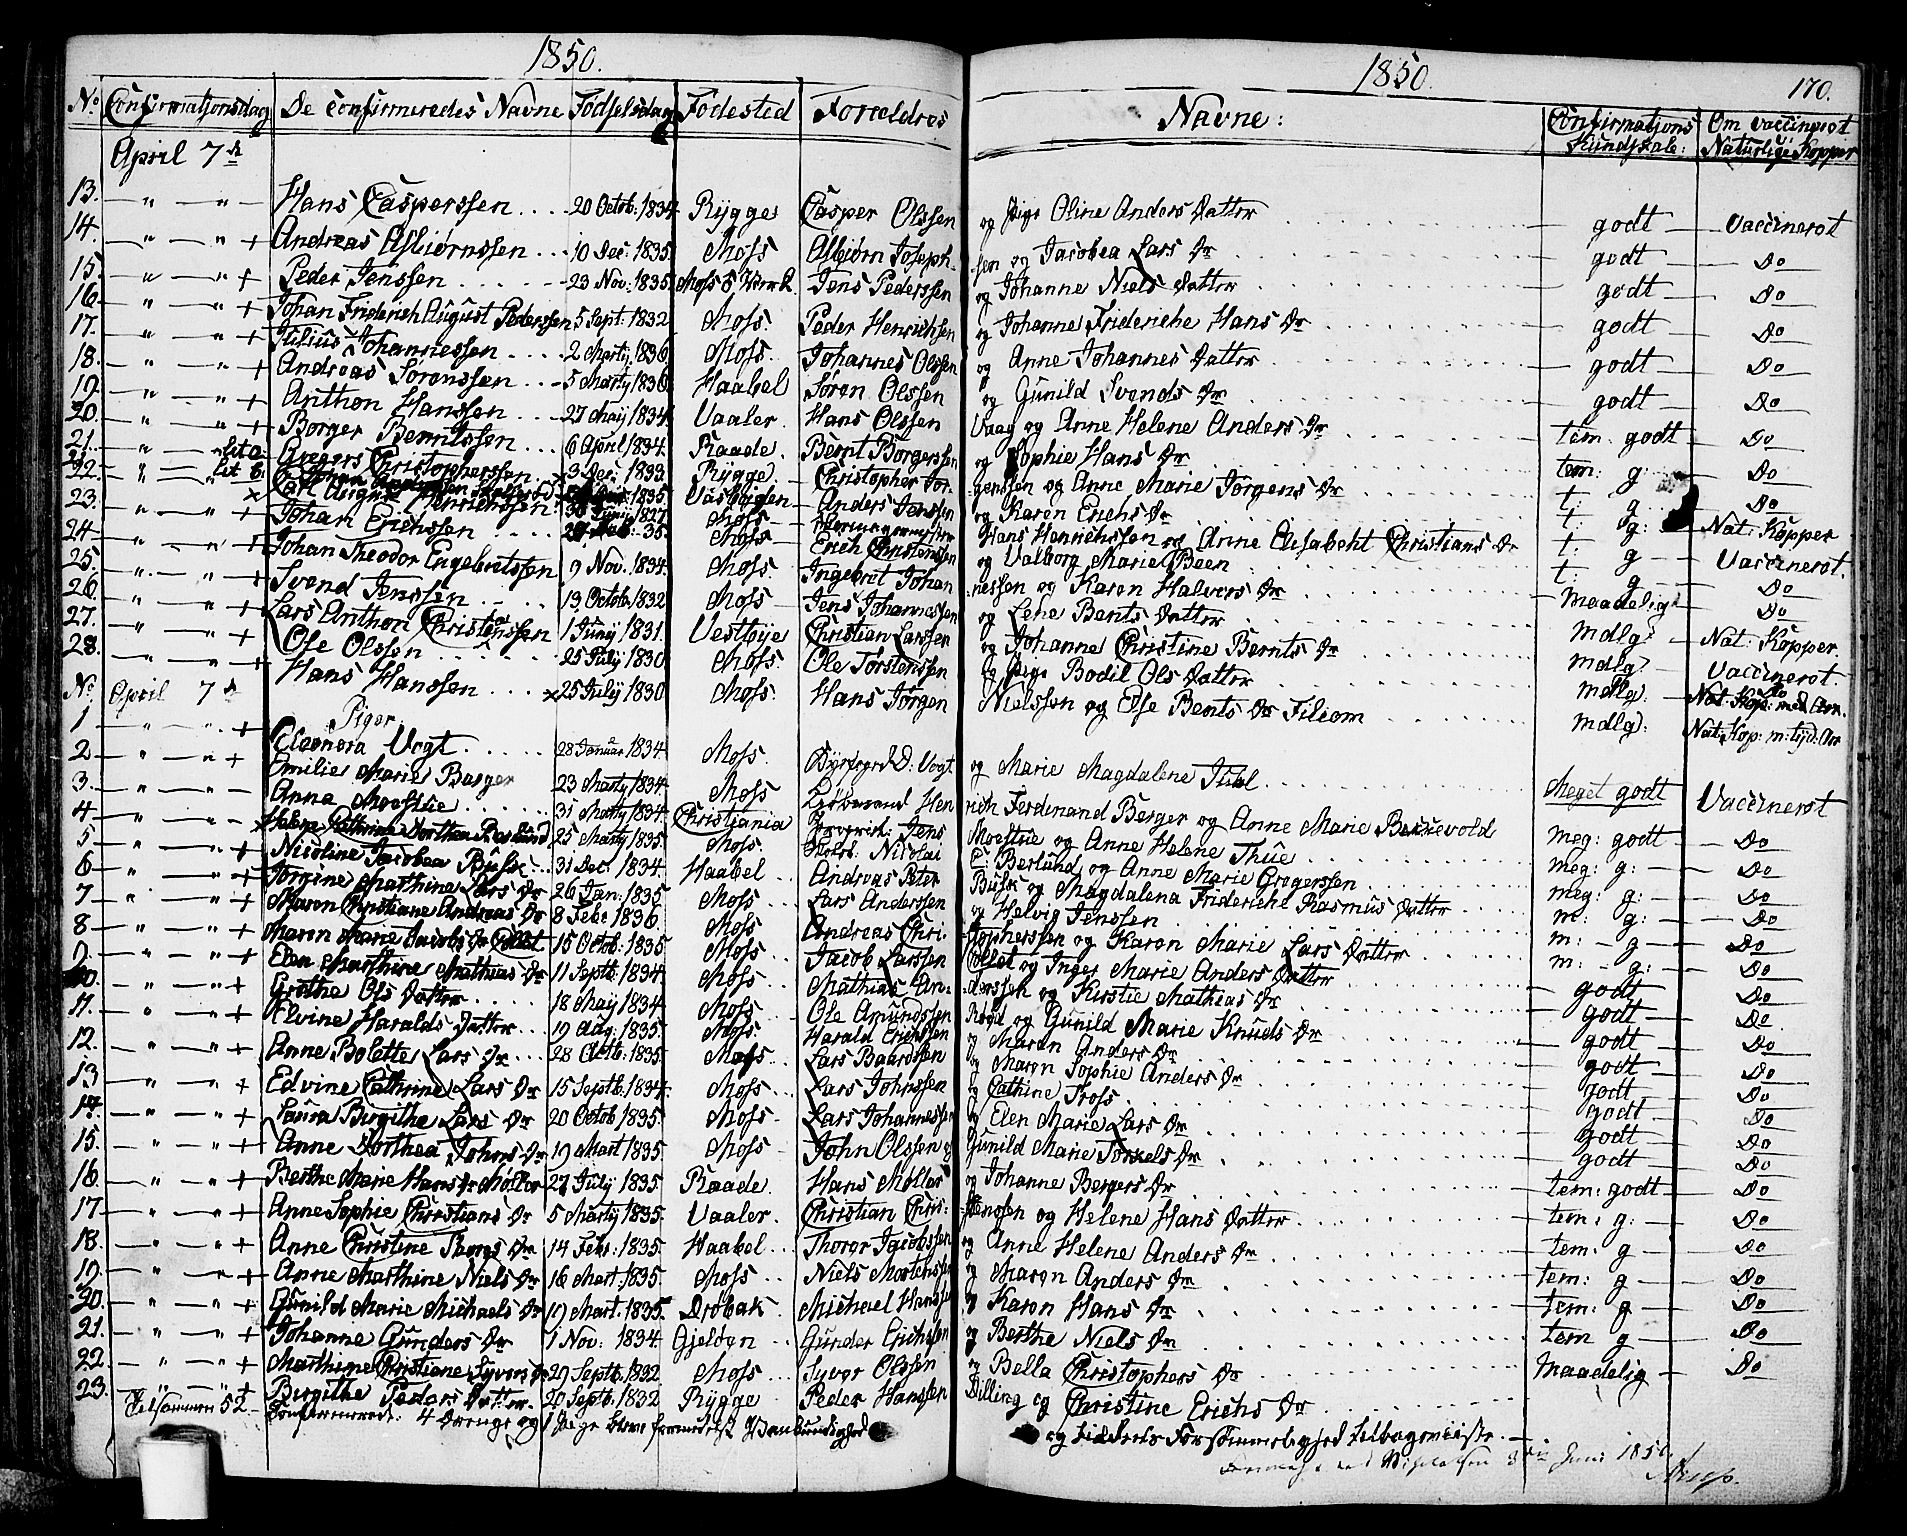 1850.
1850.
170.
No Confirmationsdag De Confirmeredes Navne Fødselsdag Fødested Forældres Navne: Confirmations Kundskab: Om vaccineret Naturlige Kopper
April 7de
13. Hans Casperssen 20 Octob. 1834 Rygge Casper Olssen og Pige Oline Anders Datter godt Vaccineret
14. + Andreas Asbiørnssen 10 Dec: 1835. Moss Asbiørn Joseph- sen og Jacobea Lars Dr godt Do
15. + Peder Jenssen 23 Nov: 1835. Moss Værk Jens Pederssen og Johanne Niels Datter godt Do
16. + Johan Friderich August Pederssen 5 Sept: 1832 Moss. Peder Henrichsen og Johanne Frideriche Hans Dr godt Do
17. + Julius Johannessen 2 Marty 1836 Moss. Johannes Olssen og Anne Johannes Datter godt Do
18. + Andreas Sørenssen 5 Marty 1836 Haabel Søren Olssen og Gunild Svends Dr godt Do
19. + Anthon Hanssen 27 May 1834. Vaaler. Hans Olssen Vaag og Anne Helene Anders Dr tem: godt Do
20. + Borger Berntssen 6 April 1834. Raade. Bernt Borgerssen og Sophie Hans Dr tem: g: Do
21. Lit a Gregers Christopherssen 3 Dec. 1833. Rygge. Christopher Jør- genssen og Anne Marie Jørgens Dr t: g Do
22. Lit b. 1835 Anders Jenssen og Karen Erichs Dr t: g: Nat: Kopper
Carl August Henrichssen 1827 Moss Hans Henrichssen og Anne Elisabeht Christians Dr
23. Johan Erichssen 35 Moss Erich Christenssen og Valborg Marie Been t: g Vaccineret.
24. + Johan Theodor Engebretssen 9 Nov. 1834. Moss Ingebret Johan nessen og Karen Halvors Dr t: g Do
25. + Svend Jenssen 13 Octob. 1832 Moss Jens Johannessen og Lene Bents Datter Maadelig Do
26. + Lars Anthon Christianssen 1 Juny 1831. Vestbye Christian Larssen og Johanne Christine Bernts Dr mdlg: Nat: Kopper.
27. + Ole Olssen 25 July 1830 Moss Ole Torstenssen og Pige Bodil Ols Datter mdlg. Vaccineret.
28. Hans Hanssen 25 July 1830 Moss. Hans Jørgen Nielssen og Else Bents Dr Fileom mdlg:
No April 7de Piger
1 + Eleonora Vogt 28 Januar 1834. Moss. D: Vogt og Marie Magdalene Juel Meget godt Vaccineret
2 + Emilie Marie Berger 23 Marty 1834. Moss Hen rich Ferdinand Berger og Anne Marie Berrevold meg: godt Do
3. Anna Moestue 31 Marty 1834. Christiania Jens Moestue og Anne Helene Thue meg: g: Do
4 25 Marty 1835. Moss. Nicolai C: Berlund og Anne Marie Gregerssen meg: g: Do
5 + Nicoline Jacobea Busk 31 Dec. 1834. Haabel Andreas Peter Busk og Magdalena Frideriche Rasmus Datter m: g: Do
6 + Jørgine Marthine Lars Dr 26 Jan: 1835 Moss Lars Anderssen og Helvig Jenssen m: g Do
7 + Maren Christiane Andreas Dr 8 Febr. 1836. Moss Andreas Chri- stopherssen og Karen Marie Lars Datter m: g: Do
8 + Maren Marie Jacobs Dr Collet 15 Octob: 1835. Moss. Jacob Larssen Collet og Inger Marie Anders Datter godt Do
9. + Elen Marthine Mathias Dr 11 Septb. 1834. Moss Mathias An- derssen og Kirstie Mathias Dr godt Do
10. + Grethe Ols Datter 18 May 1834. Moss Ole Amundssen Røed og Gunild Marie Knuds Dr godt Do
11. + Elvine Haralds Datter 19 Aug. 1835. Moss Harald Erichssen og Maren Anders Dr godt Do
12. + Anne Bolette Lars Dr 28 Octb: 1835. Moss Lars Baardssen og Maren Sophie Anders Dr godt Do
13 + Edvine Cathrine Lars Dr 15 Septb. 1834. Moss Lars Johnssen og Cathine Tross godt Do
14. + Laura Birgithe Lars Dr 20 Octob. 1835. Moss Lars Johannessen og Elen Marie Lars Dr godt Do
15. + Anne Dorthea Johns Dr 19 Mart 1835. Moss John Olssen og Gunild Marie Torkels Dr godt Do
16 + Berthe Marie Hans Dr Møller 27 July 1835. Raade. Hans Møller og Johanne Bergers Dr tem: godt Do
17 + Anne Sophie Christians Dr 5 Marty 1835. Vaaler. Christian Chris- tenssen og Helene Hans Datter tem: g: Do
18. + Anne Christine Thores Dr 14 Febr. 1835. Haabel Thorer Jacobssen og Anne Helene Anders Dr tem: g Do
19. + Anne Marthine Niels Dr 16 Mart. 1835. Moss Niels Mortenssen og Maren Anders Dr tem: g Do
20. + Gunild Marie Michaels Dr 19 Mart. 1835. Drøbak Michael Hanssen og Karen Hans Dr tem: g Do
21. + Johanne Gunders Dr 1 Nov: 1834. Gjeløen Gunder Erichssen og Berthe Niels Dr tem g Do
22 + Marthine Christiane Syvers Dr 29 Septb. 1832. Moss Syver Olssen og Bella Christophers Dr Maadelig Do
23. + Birgithe Peders Datter 20 Septb. 1832 Rygge Peder Hanssen Dilling og Christine Erichs Dr
Tilsammen 52 Confirmerede. 4 Drenge og 1 Pige bleve formedelst Vankundighed
og Forsømmelighed tilbageviiste.
Juni 1850